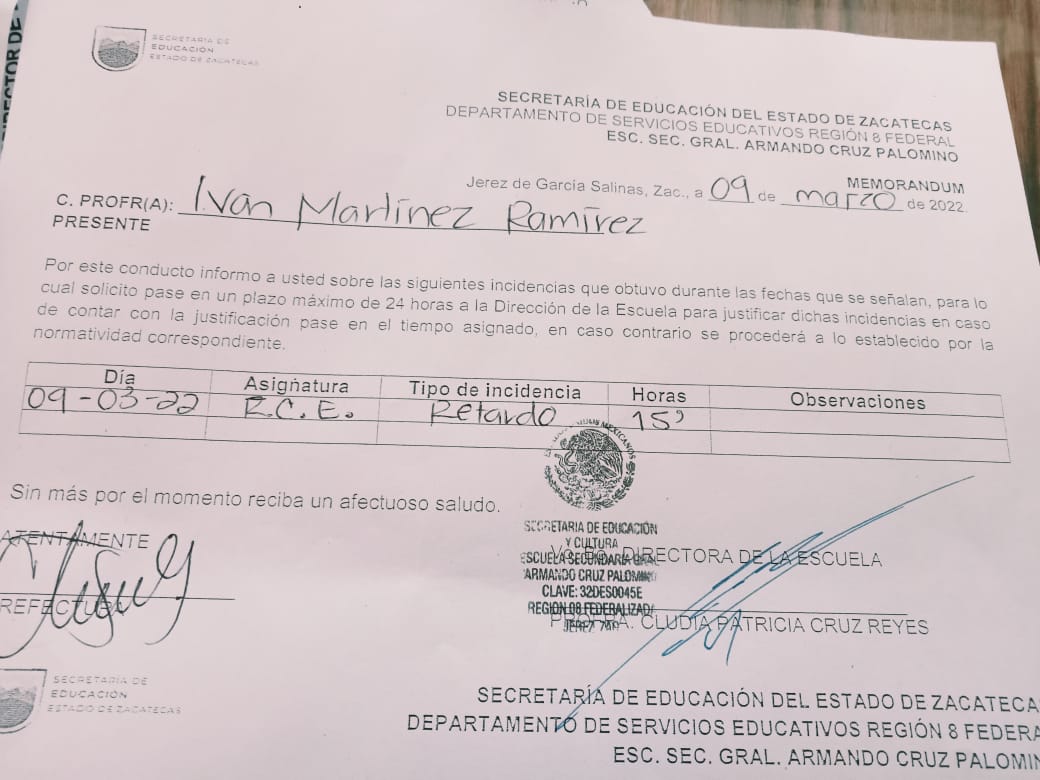 DIRECTOR DE
SECRETARÍA DE
EDUCACIÓN
ESTADO DE ZACATECAS
SECRETARÍA DE EDUCACIÓN DEL ESTADO DE ZACATECAS
DEPARTAMENTO DE SERVICIOS EDUCATIVOS REGIÓN 8 FEDERAL
ESC. SEC. GRAL. ARMANDO CRUZ PALOMINO
MEMORANDUM
Jerez de García Salinas, Zac., a 09 de marzo de 2022.
C. PROFR(A): Ivan Martínez Ramírez
PRESENTE
Por este conducto informo a usted sobre las siguientes incidencias que obtuvo durante las fechas que se señalan, para lo
cual solicito pase en un plazo máximo de 24 horas a la Dirección de la Escuela para justificar dichas incidencias en caso
de contar con la justificación pase en el tiempo asignado, en caso contrario se procederá a lo establecido por la
normatividad correspondiente.
Día Asignatura Tipo de incidencia Horas Observaciones
09-03-22 R.C.E. Retardo 15'
Sin más por el momento reciba un afectuoso saludo.
ATENTAMENTE
REFECTURA
SECRETARIA DE EDUCACIÓN
Y CULTURA
ESCUELA SECUNDARIA GRAL
ARMANDO CRUZ PALOMINO
CLAVE: 32DES0045E
REGION 08 FEDERALIZADA
JEREZ ZAC
Vo. Bo. DIRECTORA DE LA ESCUELA
PROFRA. CLUDIA PATRICIA CRUZ REYES
SECRETARÍA DE
EDUCACIÓN
ESTADO DE ZACATECAS
SECRETARÍA DE EDUCACIÓN DEL ESTADO DE ZACATECA
DEPARTAMENTO DE SERVICIOS EDUCATIVOS REGIÓN 8 FEDERA
ESC. SEC. GRAL. ARMANDO CRUZ PALOMIN